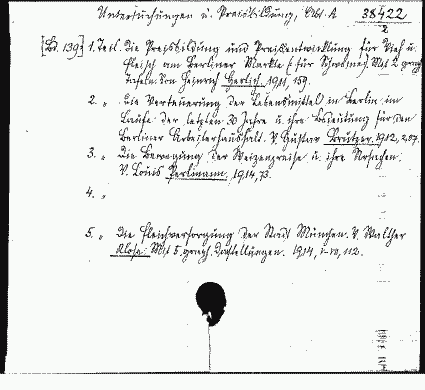 Untersuchungen ü. Preisbildung, Abt. A 38422
2
[Bd. 139] 1. Teil. Die Preisbildung und Preisentwicklung für Vieh u.
Fleisch am Berliner Markte (für Schweine). Mit 2 graph.
Tafeln. Von Heinrich Gerlich, 1911, 159.
2. " Die Verteuerung der Lebensmittel in Berlin im
Laufe der letzten 30 Jahre u. ihre Bedeutung für den
Berliner Arbeiterhaushalt. V. Gustav Brutzer, 1912, 287.
3. " Die Bewegung der Weizenpreise u. ihre Ursachen.
V. Louis Perlmann, 1914, 73.
4. "
5. " Die Fleischversorgung der Stadt München. V. Walther
Klose. Mit 5 graph. Darstellungen. 1914, 112.